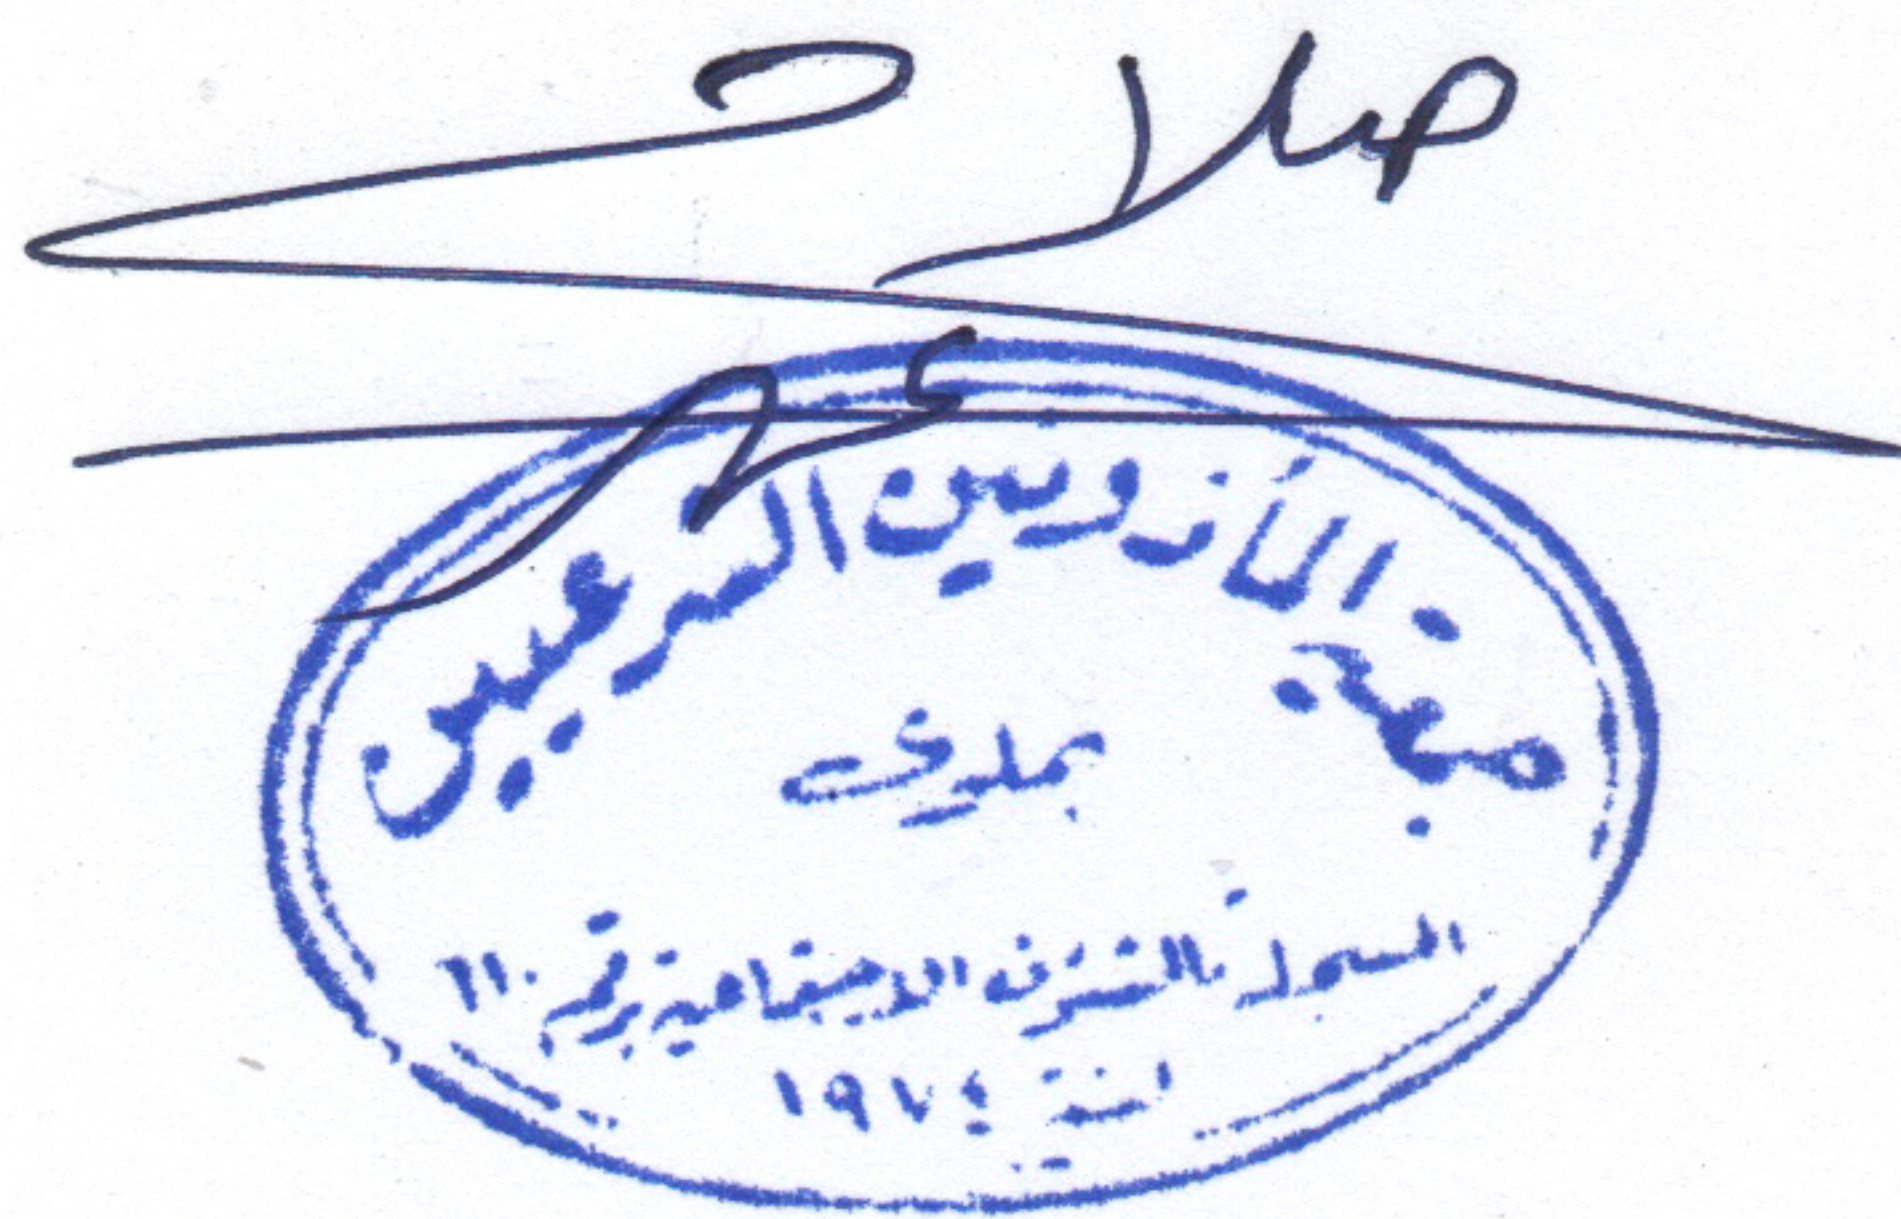 صلاح
جمعية المأذونين الشرعيين
بملوى
المسجلة بالشئون الاجتماعية برقم ٦١٠
لسنة ١٩٧٤